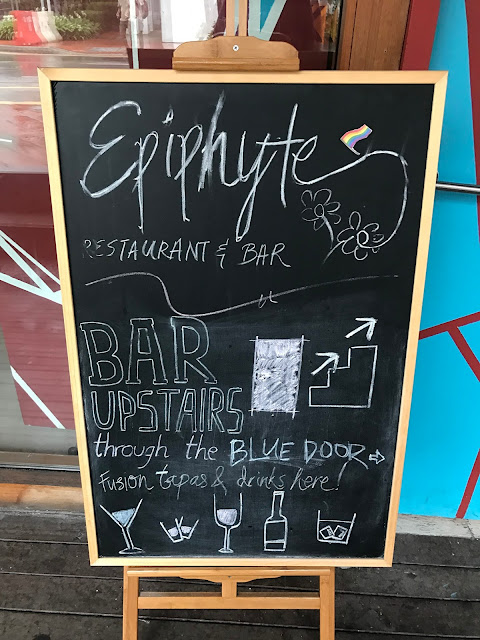 Epiphyte
RESTAURANT & BAR
BAR
UPSTAIRS
through the BLUE DOOR →
Fusion tapas & drinks here!